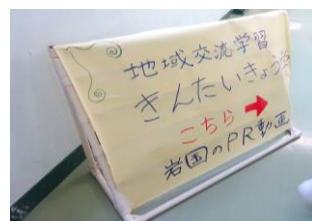 地域交流学習
きんたいきょう学
こちら➡
岩国のPR動画